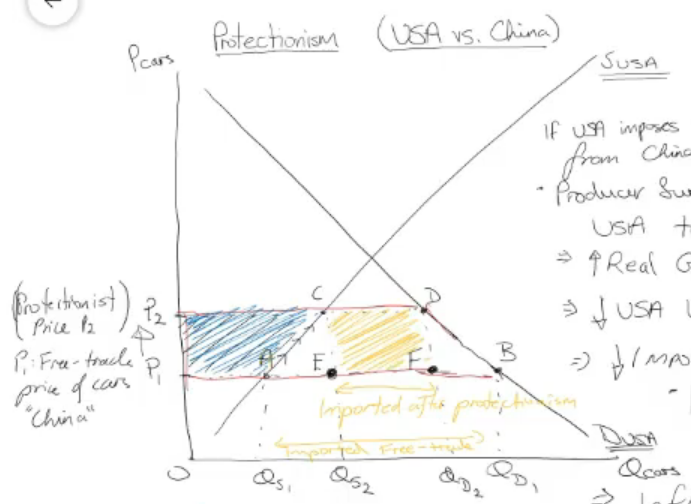 Protectionism (USA vs. China)
Pcars
SUSA
If USA imposes
from China
• Producer Su
USA t
⇒ ↑ Real G
⇒ ↓ USA
⇒ ↓ Impo
(Protectionist)
Price P2
P2
P1: Free-trade
price of cars
"China"
P1
C
D
A
E
F
B
Imported after protectionism
Imported Free-trade
DUSA
O
QS1
QS2
QD2
QD1
Qcars